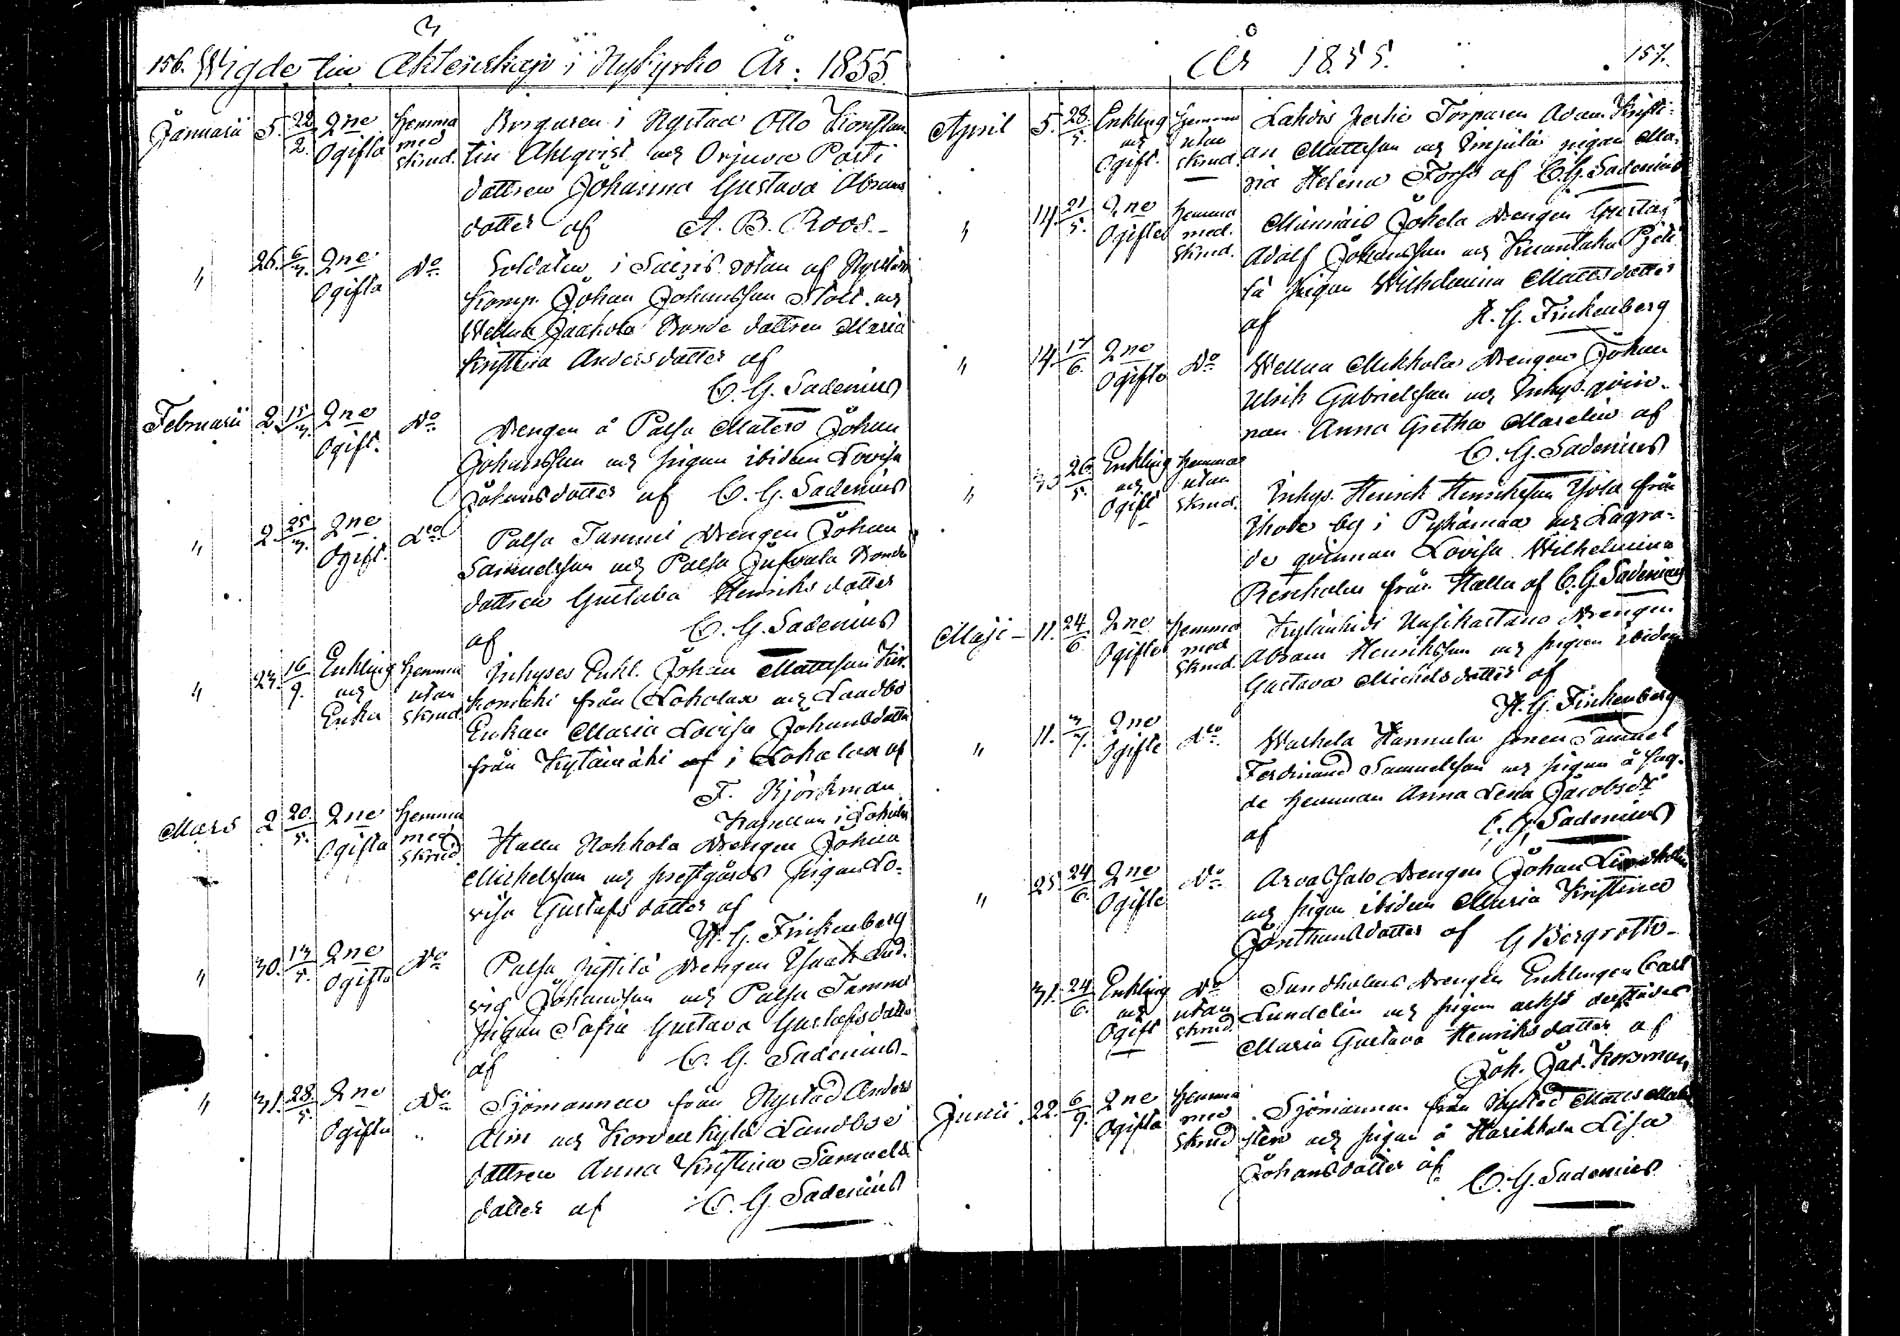 156. Wigde til Äktenskap i Nykyrko År: 1855.
Januarii 5. 22/2. 2ne Ogifta hemma med skrud. Borgaren i Nystad Otto Konstan
tin Ahlqvist och Orjuva Pärti
dottren Johanna Gustava Abrams
dotter af A. B. Roos.
" 26. 6/7. 2ne Ogifta do Soldaten i rotan af Nystads
Komp. Johan Johansson Stolt och
Wellua Jaakola Bonde dottren Maria
Kristina Andersdotter af
C. G. Sadenius
Februarii 2. 15/7. 2ne Ogift. do Drengen å Palsa Matero Johan
Johansson och pigan ibidem Lovisa
Johansdotter af C. G. Sadenius
" 2. 25/7. 2ne Ogift. do Palsa Tammi Drengen Johan
Samuelsson och Palsa Bonde
dottren Gustava Henriksdotter
af C. G. Sadenius
" 23. 16/9. Enkling och Enka hemma utan skrud. Inhyses Enkl. Johan Mattsson Kir-
komäki från Lokalax och Landbo
Enkan Maria Lovisa Johansdotter
från Kytämäki af i Lokalax af
F. Björkman
Kapellan i Lokalax
Mars 2. 20/5. 2ne Ogifta hemma med skrud. Hallu Nokkola Drengen Johan
Michelsson och prestgårds pigan Lo-
visa Gustafsdotter af
H. G. Finkenberg
" 30. 13/5. 2ne Ogifta do Palsa Drengen Isaak Lud-
vig Johansson och Palsa Tammi
Pigan Sofia Gustava Gustafsdotter
af C. G. Sadenius
" 31. 28/5. 2ne Ogifta do Sjömannen från Nystad Anders
Alm och Korvenkylä Landbo
dottren Anna Kristina Samuels
dotter af C. G. Sadenius
År 1855. 157.
April 5. 28/5. Enkling och Ogift. hemma utan skrud. Lahdis Torparen Adam Kristi-
an Mattsson och pigan Ma-
ria Helena Fors af C. G. Sadenius
" 14. 21/5. 2ne Ogifta hemma med skrud. Männäis Jokela Drengen Gustaf
Adolf Johansson och
pigan Wilhelmina Mattsdotter
af H. G. Finkenberg
" 14. 17/6. 2ne Ogifta do Wellua Mikkola Drengen Johan
Ulrik Gabrielsson och Inhys. qvin-
nan Anna Gretha Marelin af
C. G. Sadenius
" 30. 26/5. Enkling och Ogift hemma utan skrud. Inhys. Henrik Henriksson från
by i Pyhämaa och Lägra-
de qvinnan Lovisa Wilhelmina
Renholm från Hallu af C. G. Sadenius
Maji 11. 24/6. 2ne Ogifta hemma med skrud. Uusikartano Drengen
Abram Henriksson och pigan ibidem
Gustava Michelsdotter af
H. G. Finkenberg
" 11. 3/7. 2ne Ogifta do Warhela Hannula sonen Samuel
Ferdinand Samuelsson och pigan å sag-
de hemman Anna Lena Jacobsdr
af C. G. Sadenius
" 25. 24/6. 2ne Ogifta do Arvassalo Drengen Johan Lindholm
och pigan ibidem Maria Kristina
Jonathansdotter af G Bergroth
31. 24/6. Enkling och Ogift do utan skrud. Sundholms Drengen Enklingen Carl
Lundelin och pigan också derstädes
Maria Gustava Henriksdotter af
Joh. Jac. Korsman
Junii 22. 6/9. 2ne Ogifta hemma med skrud Sjömannen från Nystad Matts
och pigan å Harikkala Lisa
Johansdotter af C. G. Sadenius